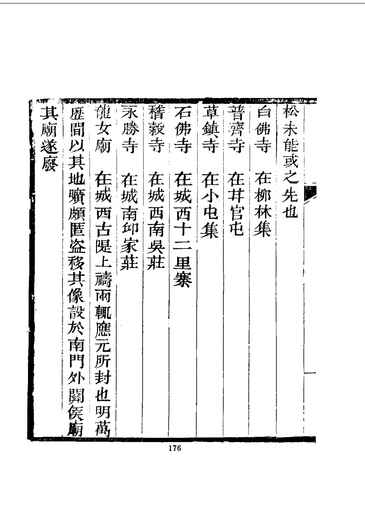 松未能或之先也
白佛寺 在柳林集
普濟寺 在井官屯
草鎮寺 在小屯集
石佛寺 在城西十二里寨
稽穀寺 在城西南吳莊
永勝寺 在城南邱家莊
龍女廟 在城西古隄上禱雨輒應元所封也明萬
歷間以其地曠頗匿盜移其像設於南門外關侯廟
其廟遂廢
176